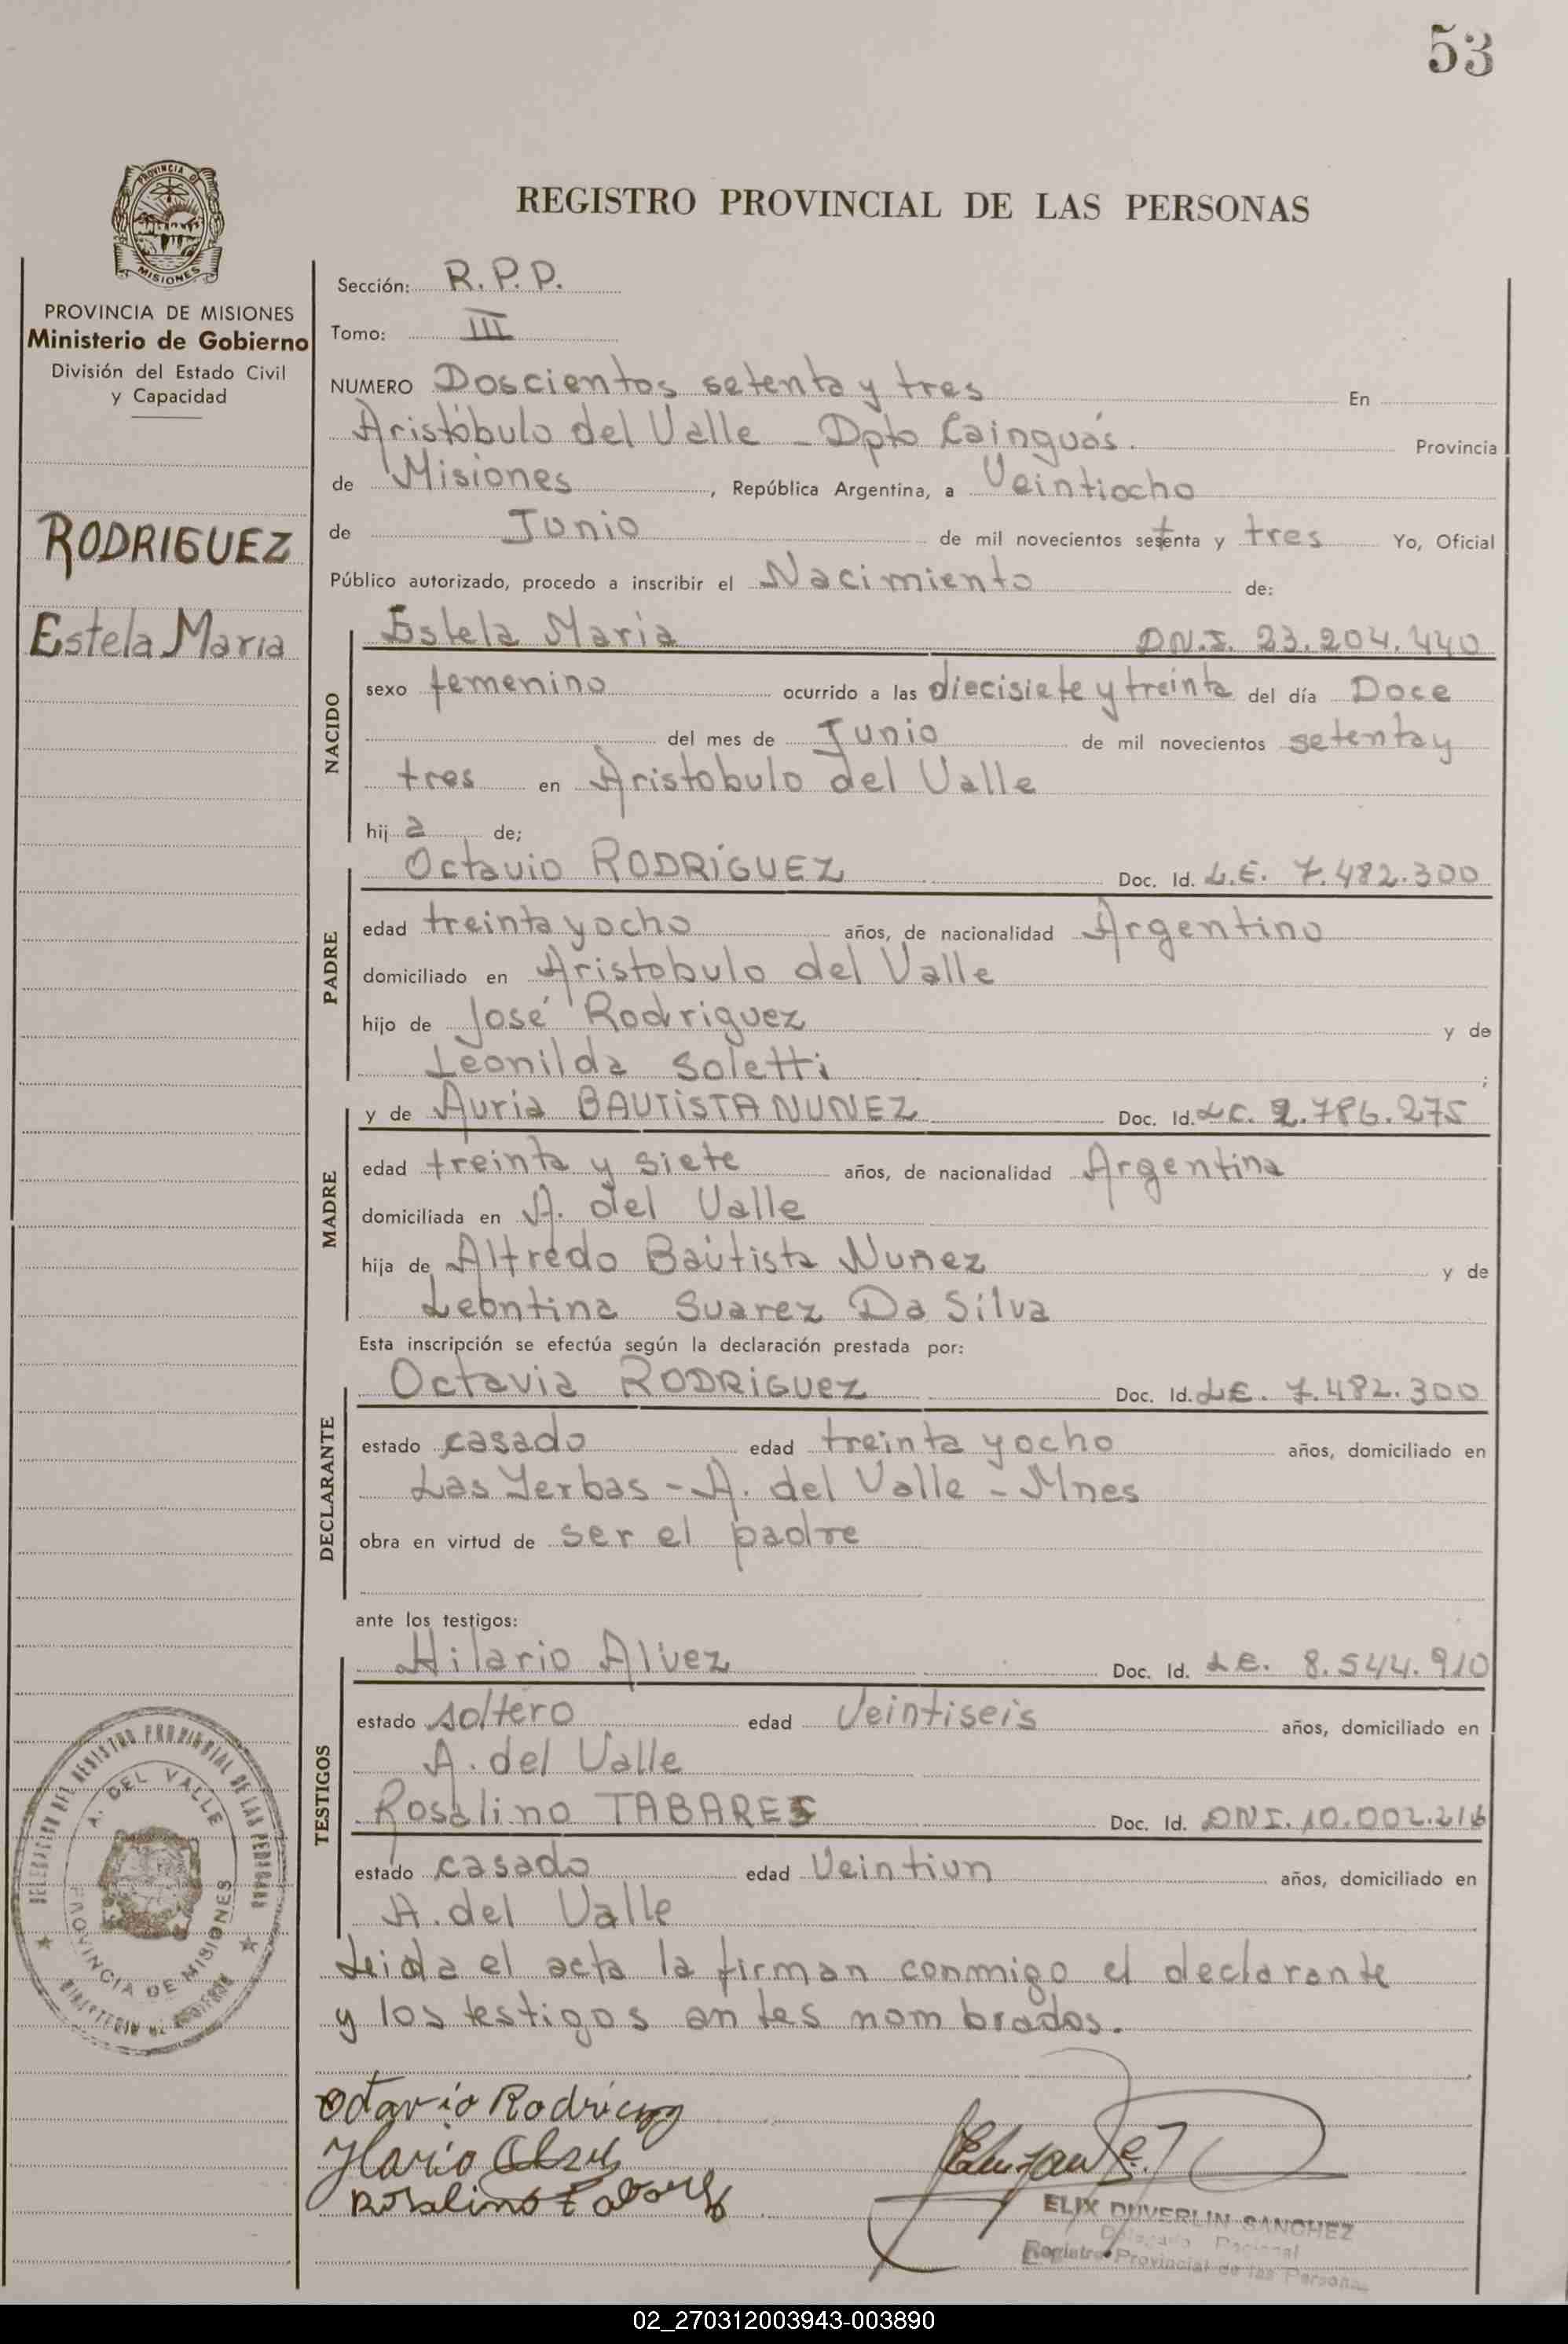 53
PROVINCIA DE MISIONES
PROVINCIA DE MISIONES
Ministerio de Gobierno
División del Estado Civil
y Capacidad
RODRIGUEZ
Estela Maria
REGISTRO PROVINCIAL DE LAS PERSONAS
Sección: R.P.P.
Tomo: III
NUMERO Doscientos setenta y tres En
Aristóbulo del Valle - Dpto Cainguás. Provincia
de Misiones, República Argentina, a Veintiocho
de Junio de mil novecientos setenta y tres Yo, Oficial
Público autorizado, procedo a inscribir el Nacimiento de:
NACIDO
Estela Maria DN.I. 23.204.440
sexo femenino ocurrido a las diecisiete y treinta del día Doce
del mes de Junio de mil novecientos setenta y
tres en Aristobulo del Valle
hij a de;
PADRE
Octavio RODRIGUEZ Doc. Id. L.E. 7.482.300
edad treinta y ocho años, de nacionalidad Argentino
domiciliado en Aristobulo del Valle
hijo de José Rodriguez y de
Leonilda Soletti ;
MADRE
y de Auria BAUTISTA NUNEZ Doc. Id. LC. 2.786.275
edad treinta y siete años, de nacionalidad Argentina
domiciliada en A. del Valle
hija de Alfredo Bautista Nunez y de
Leontina Suarez Da Silva
Esta inscripción se efectúa según la declaración prestada por:
DECLARANTE
Octavia RODRIGUEZ Doc. Id. LE. 7.482.300
estado casado edad treinta y ocho años, domiciliado en
Las Yerbas - A. del Valle - Mnes
obra en virtud de ser el padre
ante los testigos:
TESTIGOS
Hilario Alvez Doc. Id. LE. 8.544.910
estado soltero edad Veintiseis años, domiciliado en
A. del Valle
Rosalino TABARES Doc. Id. DNI. 10.002.216
estado casado edad Veintiun años, domiciliado en
A. del Valle
Leida el acta la firman conmigo el declarante
y los testigos antes nombrados.
DELEGACION DEL REGISTRO PROVINCIAL DE LAS PERSONAS
A. DEL VALLE
PROVINCIA DE MISIONES
MINISTERIO DE GOBIERNO
Otavio Rodriguez
Rosalino
ELIX DUVERLIN SANCHEZ
Registro Provincial de las Personas
02_270312003943-003890